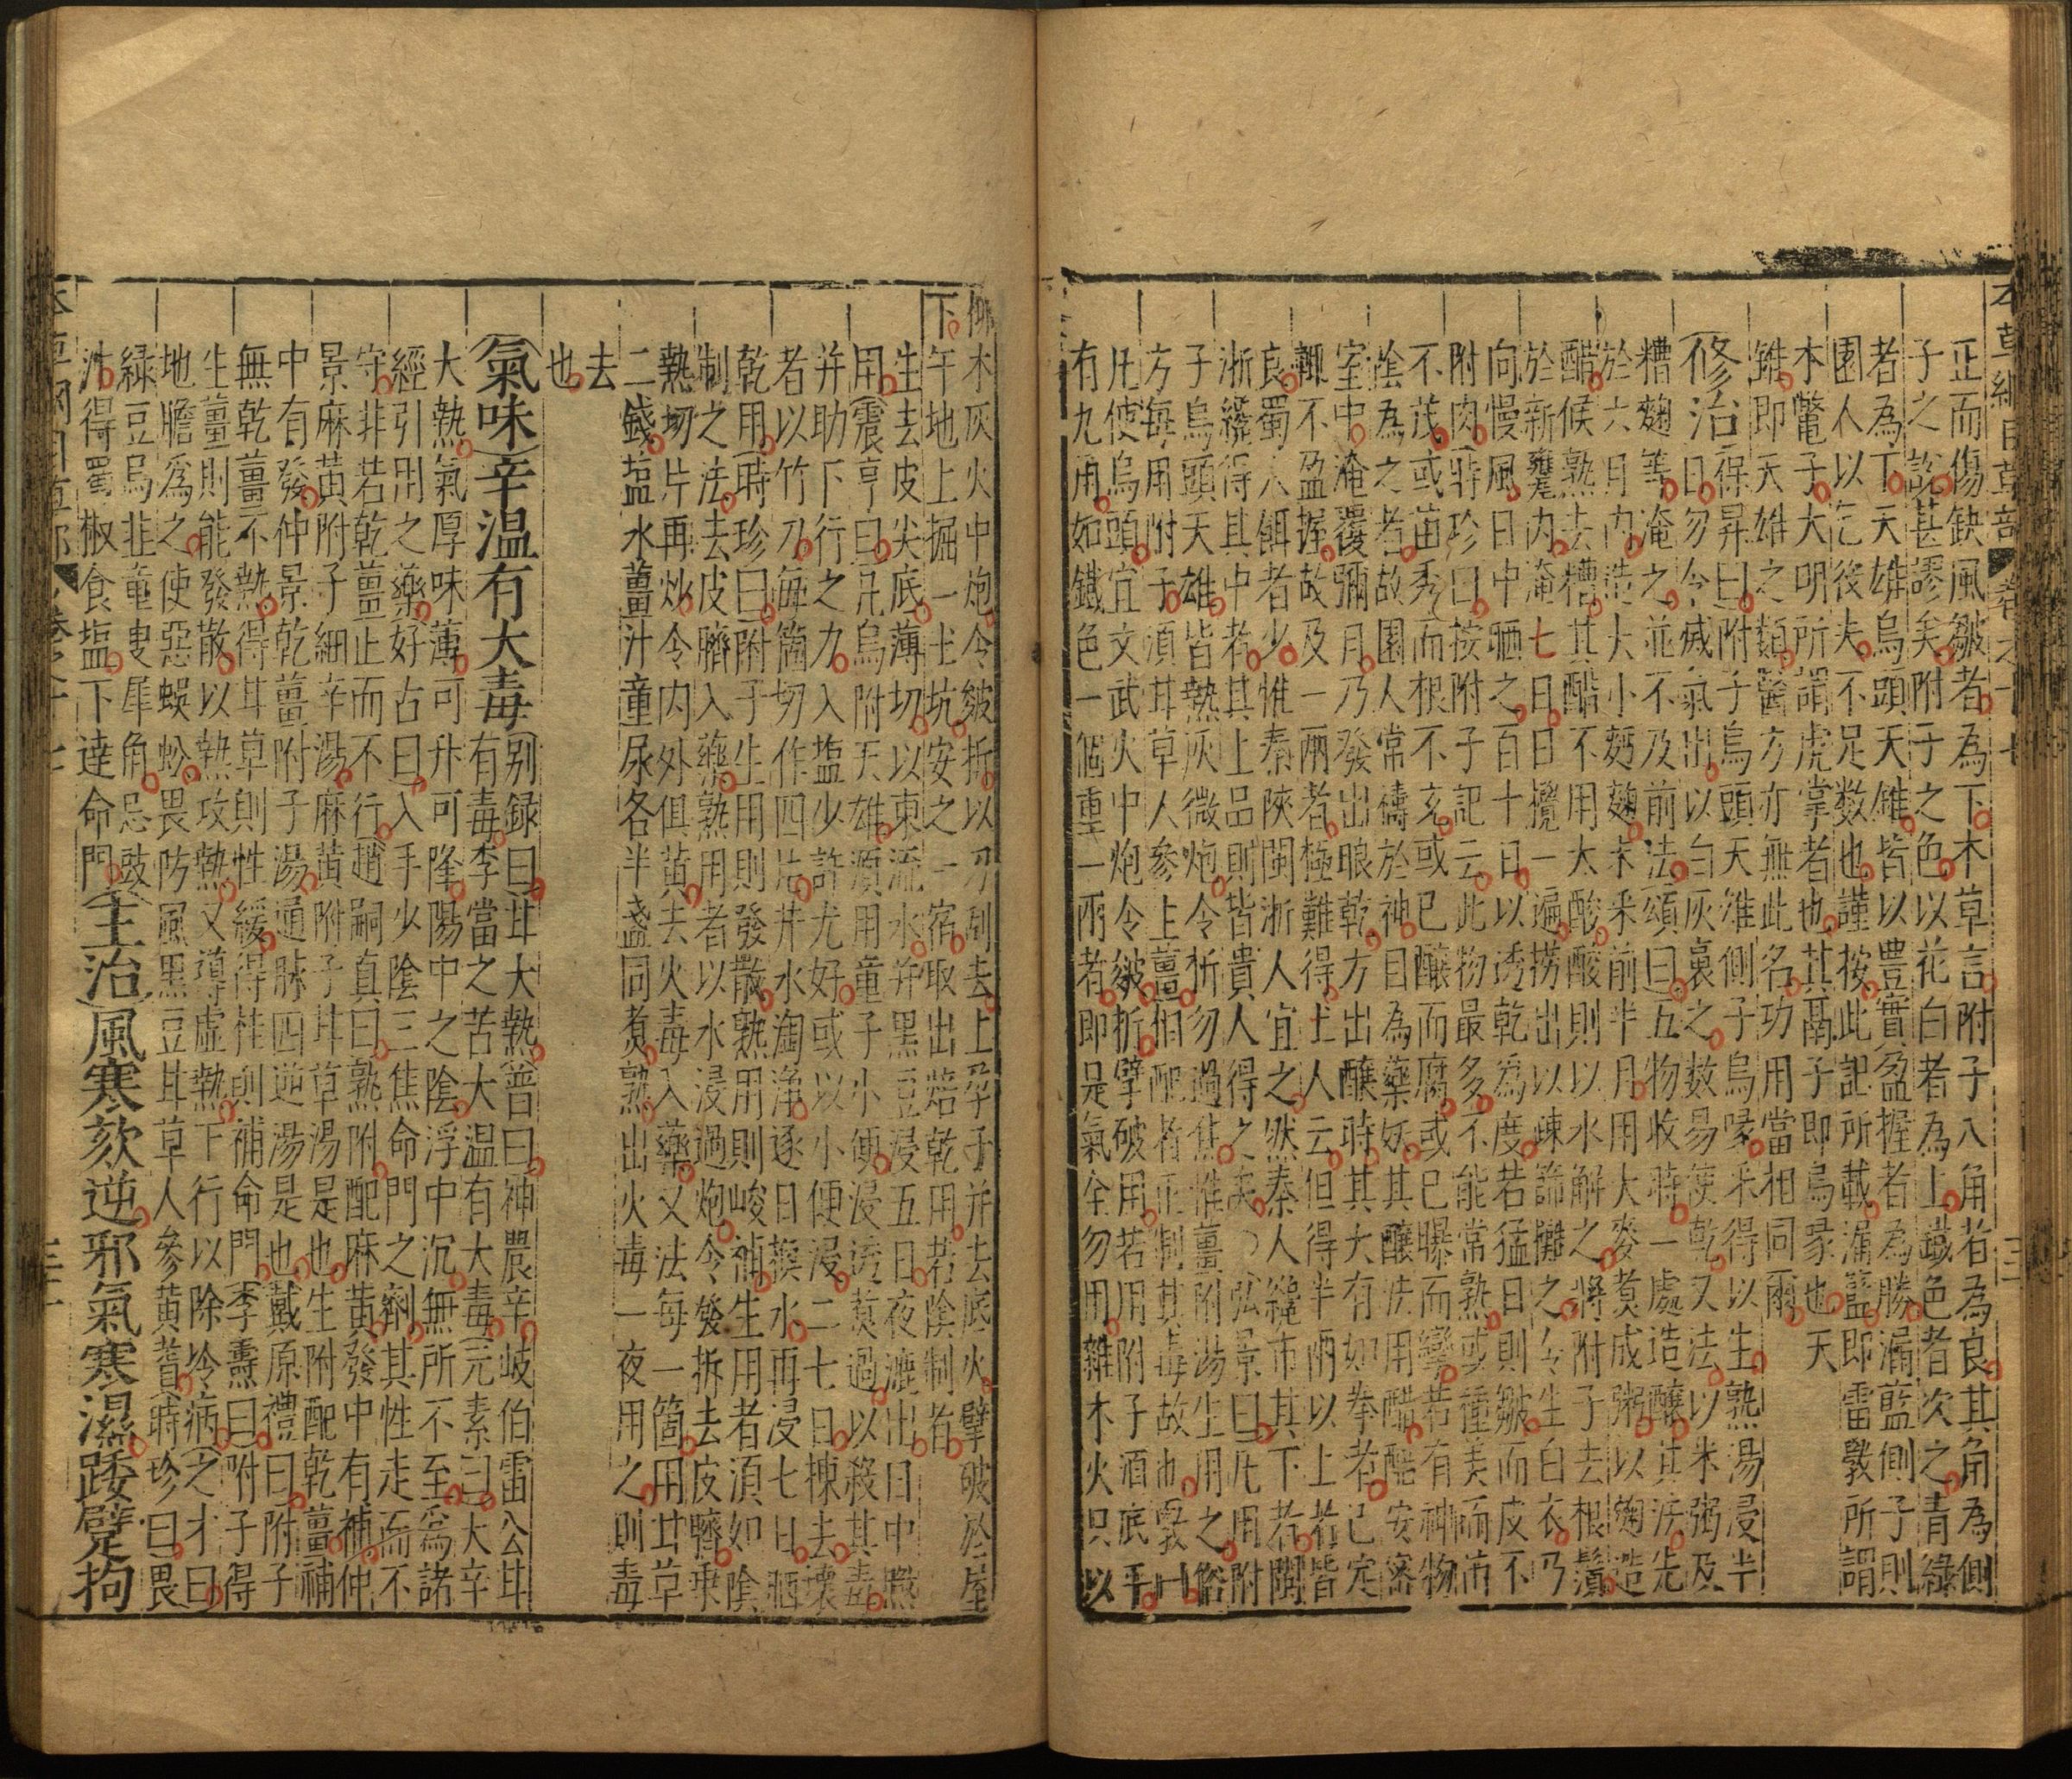 本草綱目草部 卷之十七 三
正而傷缺風皺者為下本草言附子八角者為良其角為側
子之說甚謬矣附子之色以花白者為上鐵色者次之青綠
者為下天雄烏頭天錐皆以豊實盈握者為勝漏藍側子則
園人以乞後夫不足数也謹按此記所載漏籃即雷斆所謂
木鼈子大明所謂虎掌者也其鬲子即烏喙也天
錐即天雄之類醫方亦無此名功用當相同爾
修治保昇曰附子烏頭天雄側子烏喙采得以生熟湯浸半
不日勿令滅氣出以白灰裛之数易使乾又法以米粥及
糟麴等淹之並不及前法頌曰五物收時一處造釀其法先
於六月内造大小麪麴未采前半月用大麥煑成粥以麴造
醋候熟去糟其醋不用太酸酸則以水解之將附子去根鬚
於新甕内淹七日日攪一遍撈出以踈篩攤之令生白衣乃
向慢風日中晒之百十日以透乾為度若猛日則皺而皮不
附肉時珍曰按附子記云此物最多不能常熟或種美而苗
不茂或苗秀而根不充或已釀而腐或已曝而攣若有神物
陰為之者故園人常禱於神目為藥妖其釀法用醋醅安密
室中淹覆彌月乃發出晾乾方出釀時其大有如拳者已定
輒不盈握故及一兩者極難得土人云但得半兩以上者皆
良蜀人餌者少惟秦陝閩浙人宜之然秦人纔市其下者閩
浙纔得其中者其上品則皆貴人得之矣弘景曰凡用附
子烏頭天雄皆熱灰微炮令拆勿過焦惟薑附湯生用之俗
方每用附子須甘草人參生薑相配者正制其毒故也斆曰
凡使烏頭宜文武火中炮令皴折擘破用若用附子酒底平
有九角如鐵色一個重一兩者即是氣全勿用雜木火只以
柳木灰火中炮令皴折以刀刮去上孕子并去底尖擘破於屋
下午地上掘一土坑安之一宿取出焙乾用若陰制者
生去皮尖底薄切以東流水并黑豆浸五日夜漉出日中㬠
用震亨曰凡烏附天雄須用童子小便浸透煑過以殺其毒
并助下行之力入塩少許尤好或以小便浸二七日揀去壞
者以竹刀每箇切作四片井水淘浄逐日換水再浸七日晒
乾用時珍曰附子生用則發散熟用則峻補生用者須如陰
制之法去皮臍入藥熟用者以水浸過炮令發拆去皮臍乗
熱切片再炒令内外俱黄去火毒入藥又法每一箇用甘草
二錢塩水薑汁童尿各半盞同煑熟出火毒一夜用之則毒
去
也
氣味辛温有大毒別録曰甘大熱普曰神農辛岐伯雷公甘
有毒李當之苦大温有大毒元素曰大辛
大熱氣厚味薄可升可降陽中之陰浮中沉無所不至為諸
經引用之藥好古曰入手少陰三焦命門之劑其性走而不
守非若乾薑止而不行趙嗣真曰熟附配麻黄發中有補仲
景麻黄附子細辛湯麻黄附子甘草湯是也生附配乾薑補
中有發仲景乾薑附子湯通脉四逆湯是也戴原禮曰附子
無乾薑不熱得甘草則性緩得桂則補命門李燾曰附子得
生薑則能發散以熱攻熱又導虛熱下行以除冷病之才曰
地膽為之使惡蜈蚣畏防風黑豆甘草人參黄芪時珍曰畏
緑豆烏韭童㲈犀角忌豉
汁得蜀椒食塩下達命門主治風寒欬逆邪氣寒濕踒躄拘
本草綱目草部 卷之十七